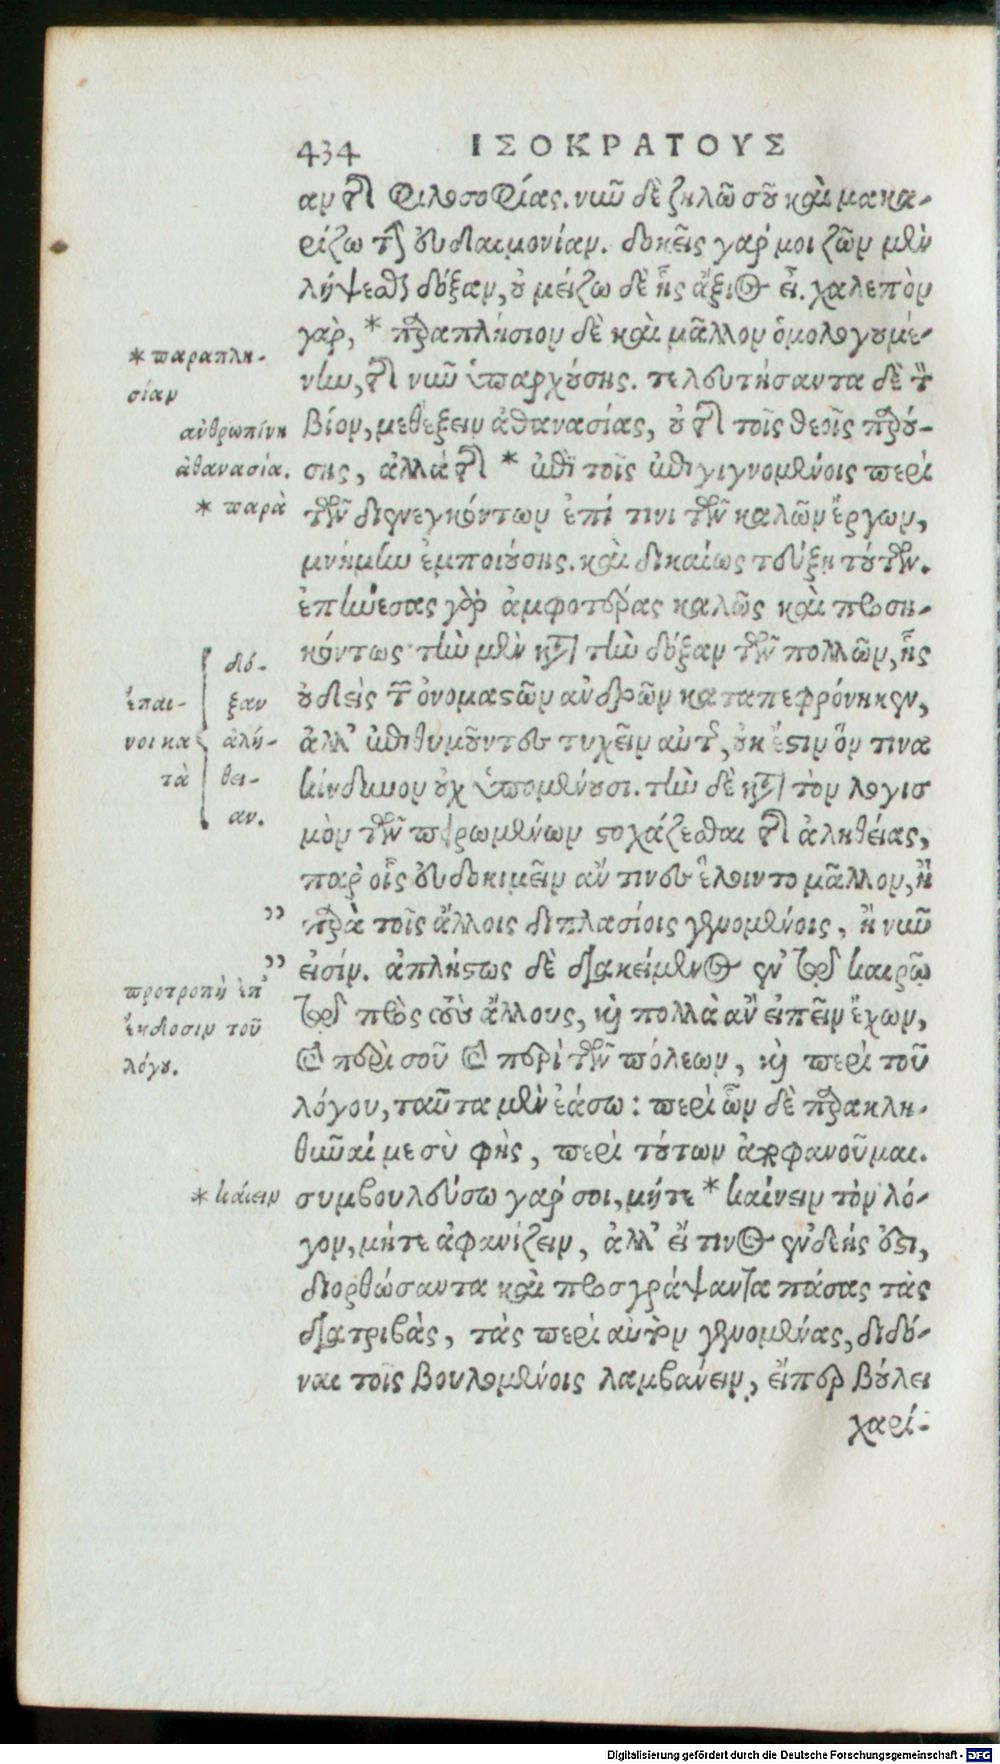 434 ΙΣΟΚΡΑΤΟΥΣ
αν τῆς φιλοσοφίας. νῦν δὲ ζηλῶ σοῦ καὶ μακα-
ρίζω τὴν εὐδαιμονίαν. δοκεῖς γάρ μοι ζῶν μὲν
λήψεσθαι δόξαν, οὐ μείζω δὲ ἧς ἄξιος εἶ. χαλεπὸν
γὰρ, * παραπλήσιον δὲ καὶ μᾶλλον ὁμολογουμέ-
νην, τῆς νῦν ὑπαρχούσης. τελευτήσαντα δὲ τὸν
βίον, μεθέξειν ἀθανασίας, οὐ τῆς τοῖς θεοῖς παρού-
σης, ἀλλὰ τῆς * ἐπὶ τοῖς ἐπιγιγνομένοις περὶ
τῶν διενεγκόντων ἐπί τινι τῶν καλῶν ἔργων,
μνήμην ἐμποιούσης. καὶ δικαίως τεύξῃ τούτων.
ἐπῄνεσας γὰρ ἀμφοτέρας καλῶς καὶ προση-
κόντως· τὴν μὲν κατὰ τὴν δόξαν τῶν πολλῶν, ἧς
οὐδεὶς τῶν ὀνομαστῶν ἀνδρῶν καταπεφρόνηκεν,
ἀλλ' ἐπιθυμοῦντες τυχεῖν αὐτῆς, οὐκ ἔστιν ὅν τινα
κίνδυνον οὐχ ὑπομένουσι. τὴν δὲ κατὰ τὸν λογισ
μὸν τῶν πειρωμένων στοχάζεσθαι τῆς ἀληθείας,
παρ' οἷς εὐδοκιμεῖν ἄν τινες ἕλοιντο μᾶλλον, ἢ
παρὰ τοῖς ἄλλοις διπλασίοις γενομένοις, ἢ νῦν
εἰσίν. ἀπλήστως δὲ διακείμενος ἐν τῷ καιρῷ
τῷ πρὸς τοὺς ἄλλους, καὶ πολλὰ ἂν εἰπεῖν ἔχων,
καὶ περὶ σοῦ καὶ περὶ τῶν πόλεων, καὶ περὶ τοῦ
λόγου, ταῦτα μὲν ἐάσω: περὶ ὧν δὲ παρακλη-
θῆναί με σὺ φὴς, περὶ τούτων ἀποφανοῦμαι.
συμβουλεύσω γάρ σοι, μήτε * καίνειν τὸν λό-
γον, μήτε ἀφανίζειν, ἀλλ' εἴ τινος ἐνδεής ἐστι,
διορθώσαντα καὶ προσγράψαντα πάσας τὰς
διατριβὰς, τὰς περὶ αὐτὸν γενομένας, διδό-
ναι τοῖς βουλομένοις λαμβάνειν, εἴπερ βούλει
χαρί-
* παραπλη-
σίαν
ἀνθρωπίνη
ἀθανασία.
* παρὰ
ἔπαι-
νοι κα
τὰ
δό-
ξαν
ἀλή-
θει-
αν.
”
”
προτροπὴ ἐπ'
ἔκδοσιν τοῦ
λόγου.
* κάειν
Digitalisierung gefördert durch die Deutsche Forschungsgemeinschaft - DFG